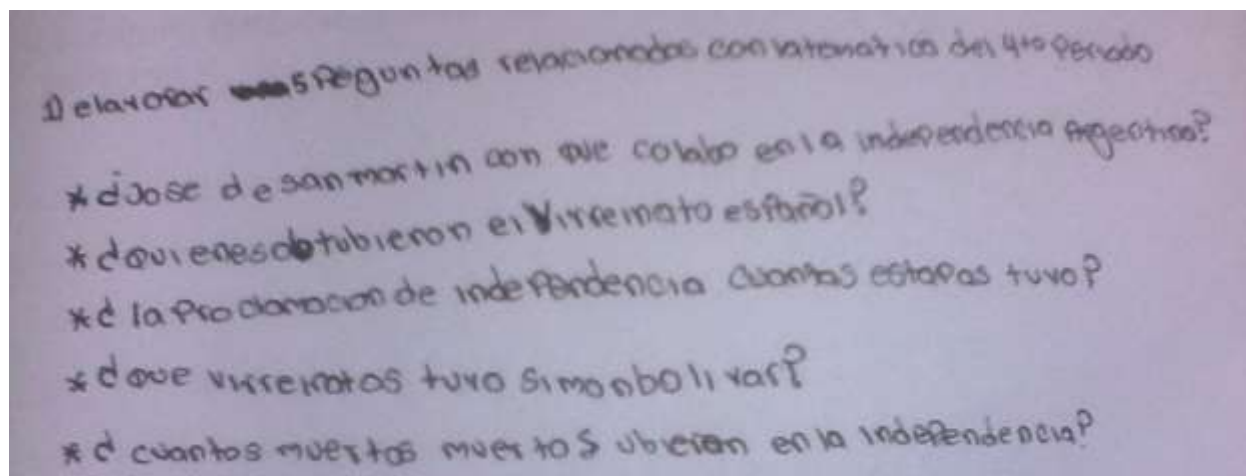 1) elavorar 5 Preguntas relacionadas con latematica del 4to Periodo
* ¿Jose de san martin con que colabo en la independencia Argentina?
* ¿quienes obtubieron el Virreinato español?
* ¿ la Proclamacion de independencia cuantas estapas tuvo?
* ¿ que virreinatos tuvo simon bolivar?
* ¿ cuantos muertos muertos ubieron en la independencia?